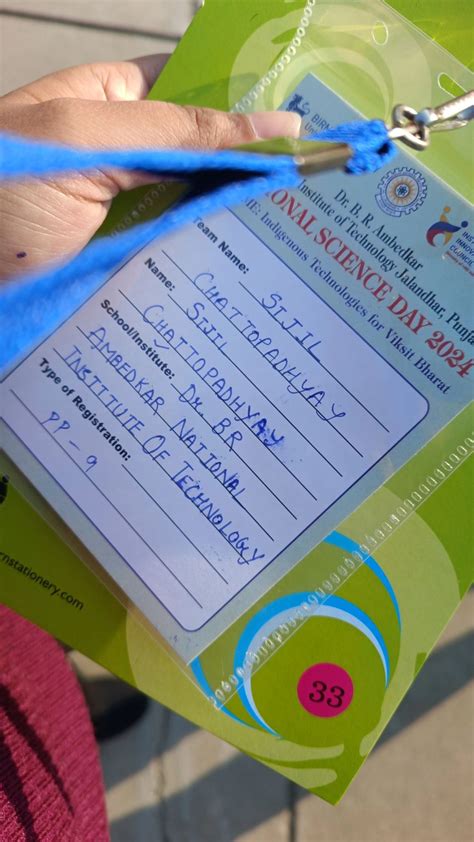 BIRN
Dr. B. R. Ambedkar
Institute of Technology Jalandhar, Punja
IONAL SCIENCE DAY 2024
ME: Indigenous Technologies for Viksit Bharat
Team Name: SIJIL
CHATTOPADHYAY
Name: SIJIL
CHATTOPADHYAY
School/Institute: Dr. BR
AMBEDKAR NATIONAL
INSTITUTE OF TECHNOLOGY
Type of Registration:
PP-9
rnstationery.com
33